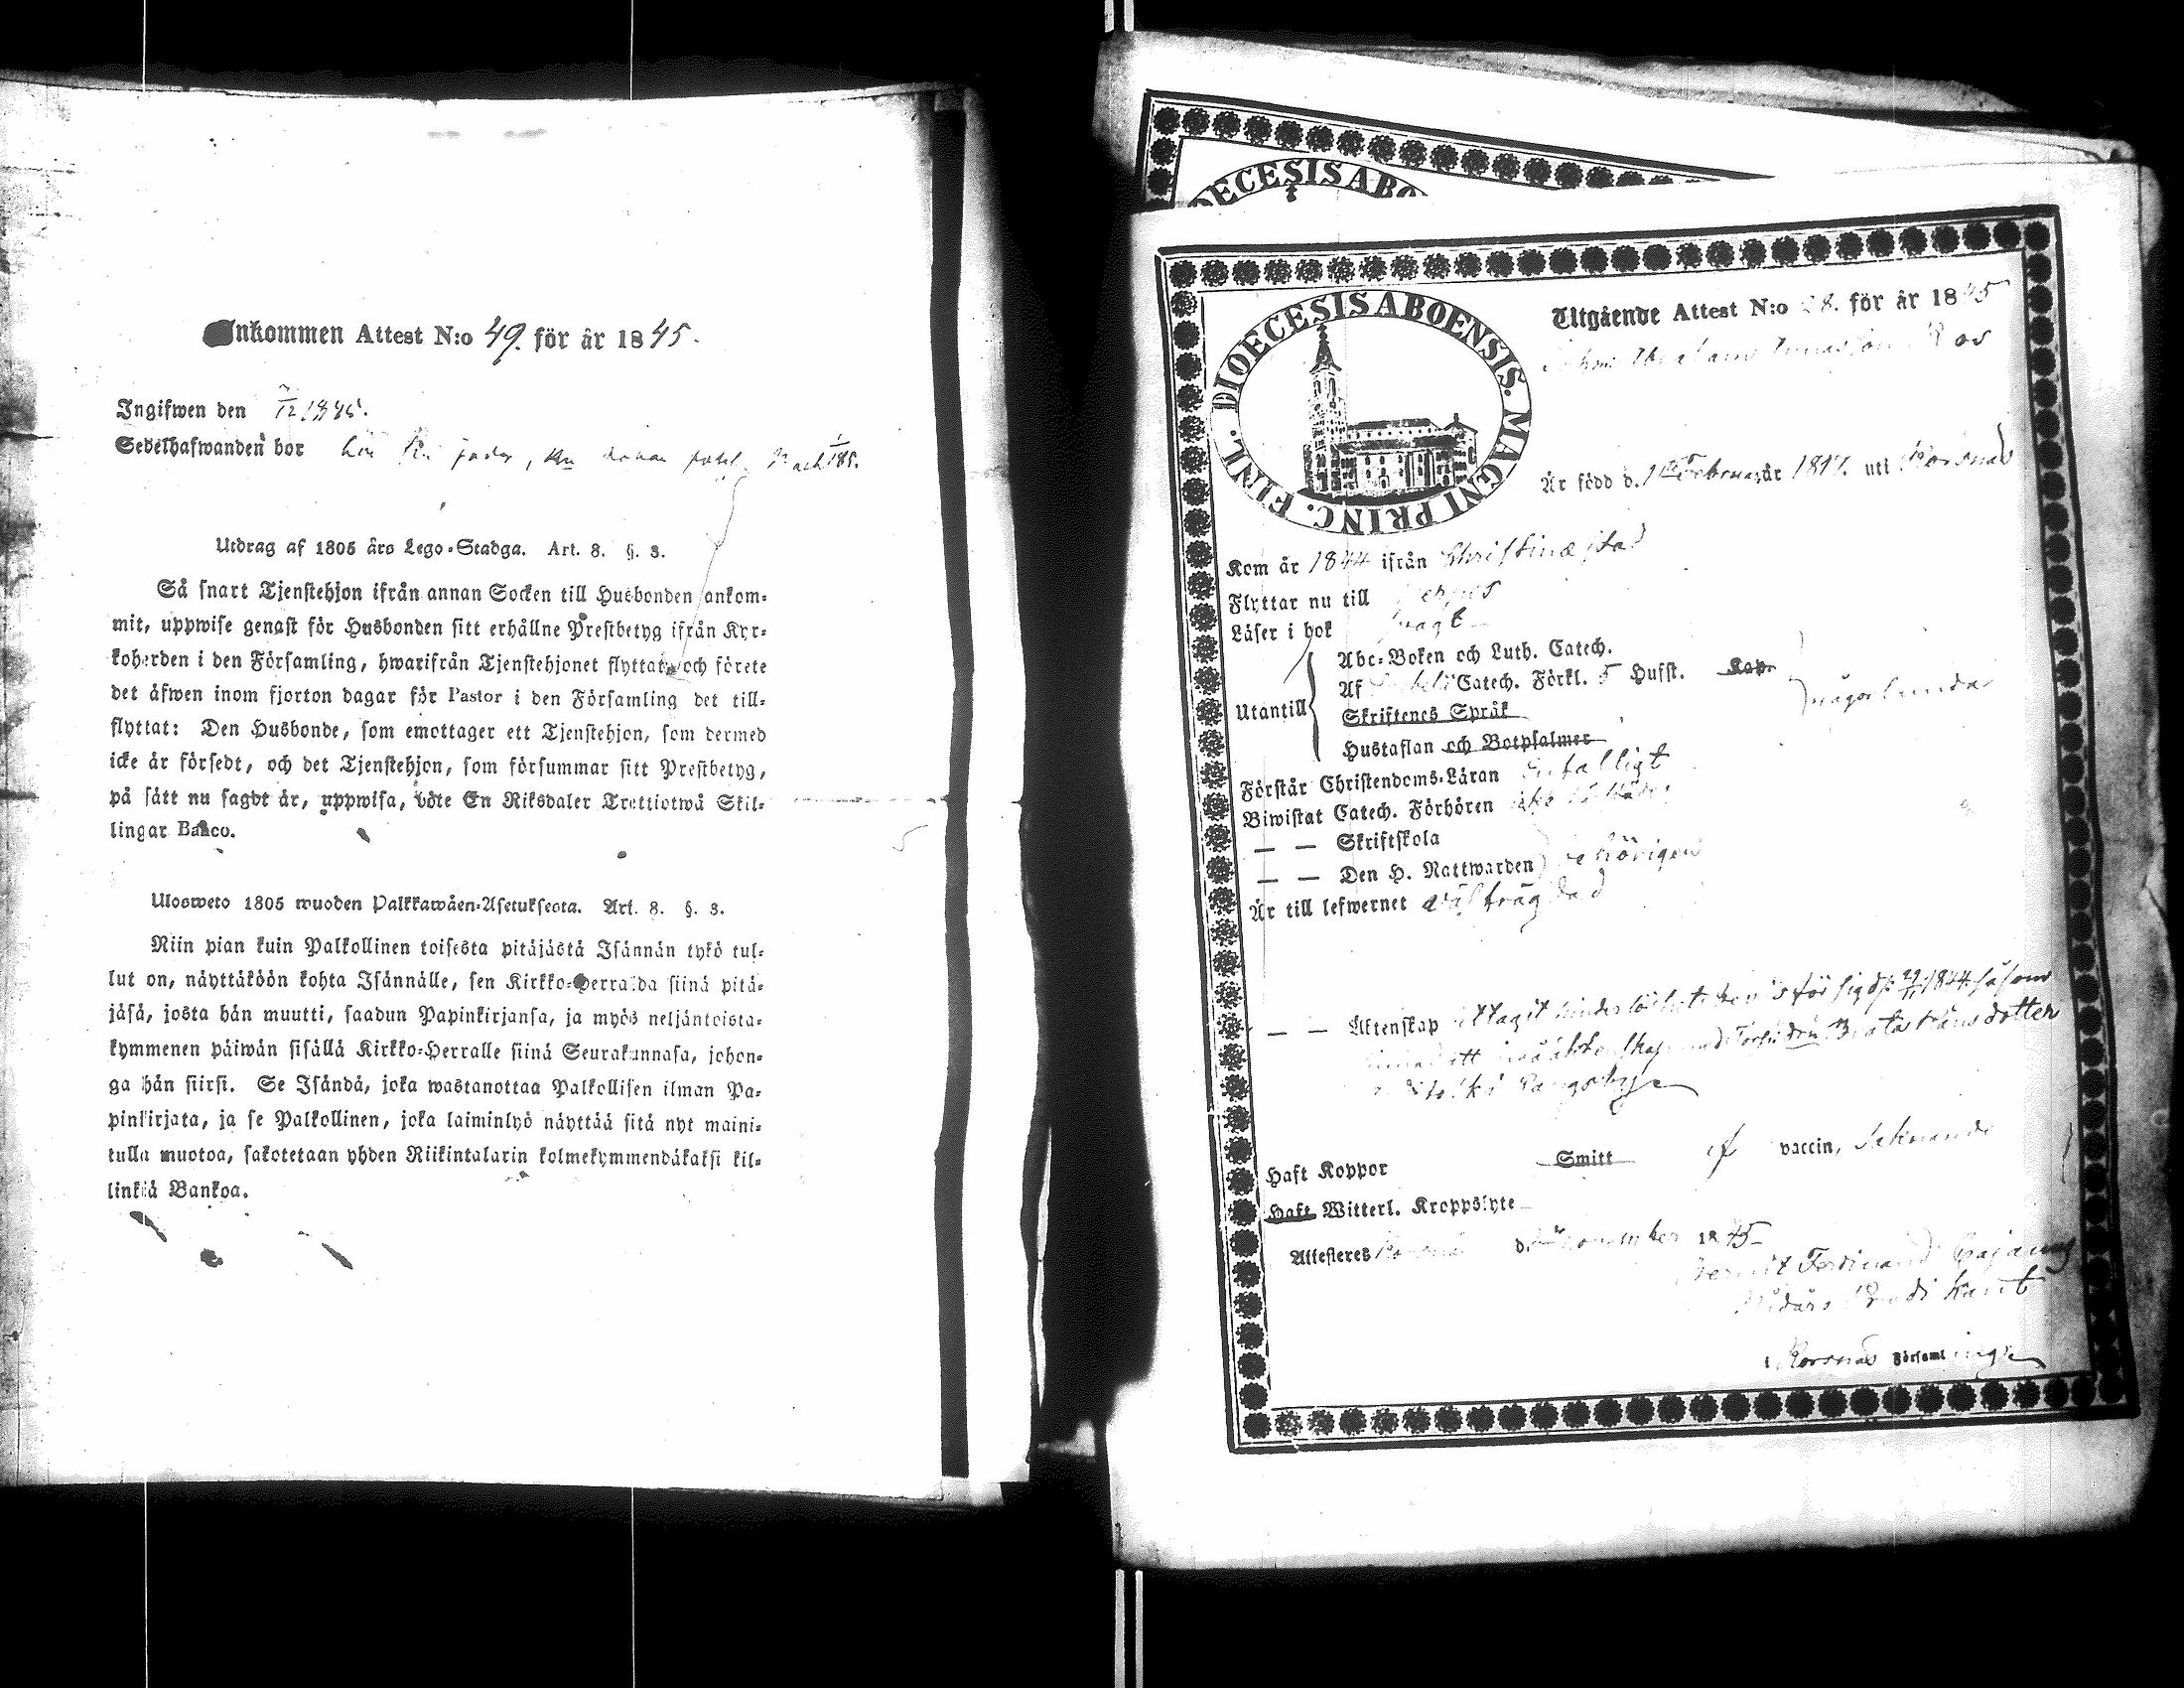 Inkommen Attest N:o 49. för år 1845.
Ingifwen den 7/12 1845.
Sedelhafwanden bor
Utdrag af 1805 års Lego-Stadga. Art. 8. §. 3.
Så snart Tjenstehjon ifrån annan Socken till Husbonden ankom-
mit, uppwise genast för Husbonden sitt erhållne Prestbetyg ifrån Kyr-
koherden i den Församling, hwarifrån Tjenstehjonet flyttat, och förete
det äfwen inom fjorton dagar för Pastor i den Församling det till-
flyttat: Den Husbonde, som emottager ett Tjenstehjon, som dermed
icke är försedt, och det Tjenstehjon, som försummar sitt Prestbetyg,
på sätt nu sagdt är, uppwisa, böte En Riksdaler Trettiotwå Skil-
lingar Banco.
Ulosweto 1805 wuoden Palkkawäen-Asetuksesta. Art. 8. §. 3.
Niin pian kuin Palkollinen toisesta pitäjästä Isännän tykö tul-
lut on, näyttäköön kohta Isännälle, sen Kirkko-Herralda siinä pitä-
jäsä, josta hän muutti, saadun Papinkirjansa, ja myös neljäntoista-
kymmenen päiwän sisällä Kirkko-Herralle siinä Seurakunnasa, johon-
ga hän siirsi. Se Isändä, joka wastanottaa Palkollisen ilman Pa-
pinkirjata, ja se Palkollinen, joka laiminlyö näyttää sitä nyt maini-
tulla muotoa, sakotetaan yhden Riikintalarin kolmekymmendäkaksi kil-
linkiä Bankoa.
DIOECESIS ABO
DIOECESIS ABOENSIS. MAGNI PRINC. FINL.
Utgående Attest N:o 28. för år 1845
Abraham Ros
Är född d. 1 Februar år 1817. uti Korsnäs
Kom år 1844 ifrån Christinæstad
Flyttar nu till
Läser i bok svagt
Utantill
Abc-Boken och Luth. Catech.
Af Catech. Förkl. 5 Hufst. Kap.
Skriftenes Språk
Hustaflan och Botpsalmer
någorlunda
Förstår Christendoms-Läran enfalligt
Biwistat Catech. Förhören
— — Skriftskola
— — Den H. Nattwarden behörigen
Är till lefwernet välfrägdad
— — Äktenskap uttagit hinderslöshets bevis för sig d. 29/11 1844 såsom
sinnad att ingå äktenskap med Beata Hansdotter
Haft Koppor Smitt ej vaccin, saknande
Haft Witterl. Kroppslyte
Attesteras Korsnäs d. November 1845
Berndt Ferdinand Cajanus
Predikant
i Korsnäs Församlinge